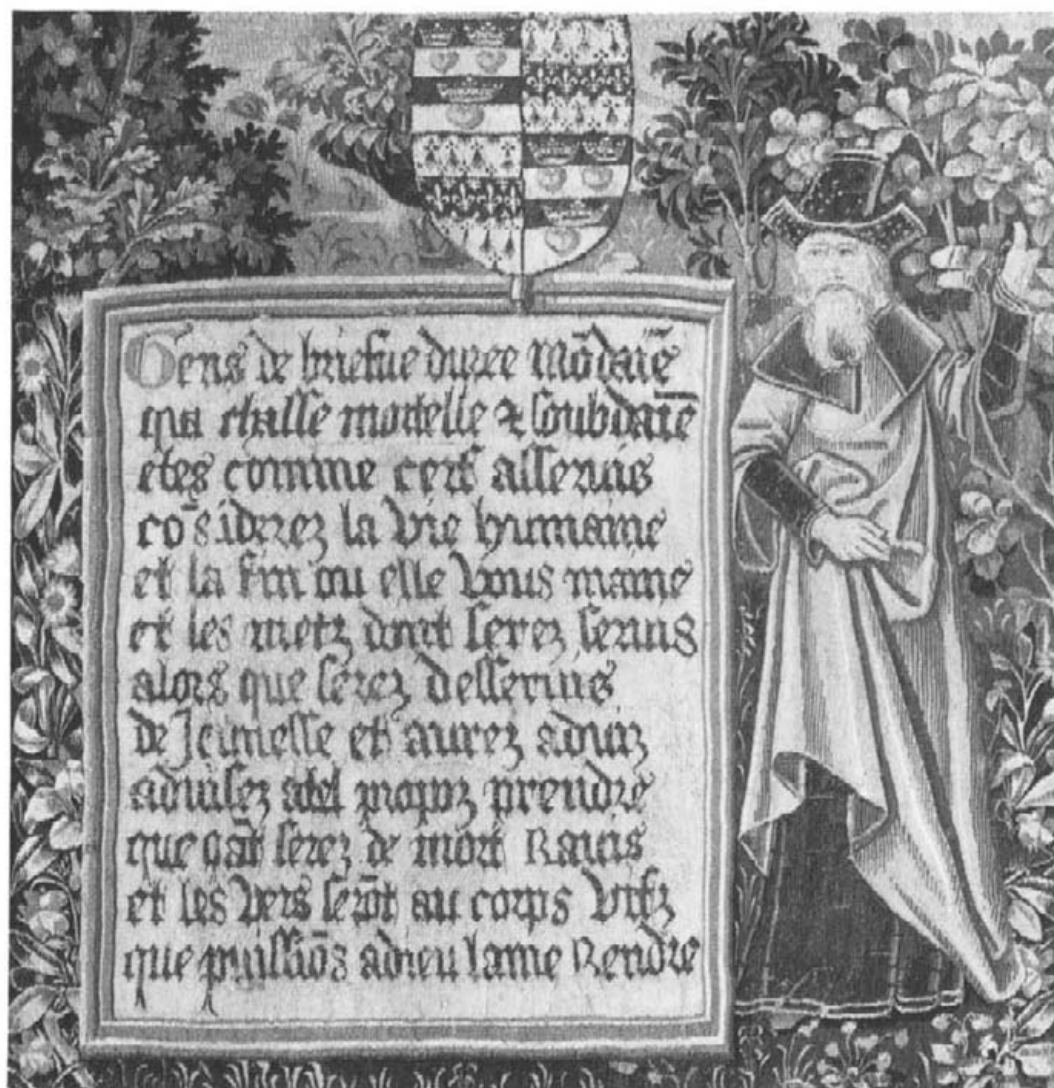 Gens de briefue duree mōdaiē
qua chasse mortelle & soubdaiē
etes comme cerf asseruis
cōsiderez la vie humaine
et la fin ou elle vous maine
et les metz dont serez seruis
alors que serez desseruis
de Jeunesse et aurez aduiz
aduisez atel propoz prendre
que qāt serez de mort Rauis
et les vers serōt au corps vifz
que puissiōs adieu lame Rendre